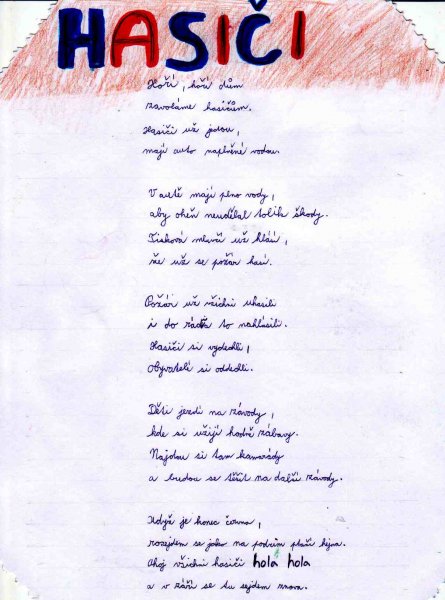 HASIČI
Hoří, hoří dům
zavoláme hasičům.
Hasiči už jedou,
mají auto naplněné vodou.
V autě mají plno vody,
aby oheň neudělal tolik škody.
Tisková mluvčí už hlásí,
že už se požár hasí.
Požár už všichni uhasili
i do rádia to nahlásili.
Hasiči si vydechli,
obyvatelé si oddechli.
Děti jezdí na závody,
kde si užijí hodně zábavy.
Najdou si tam kamarády
a budou se těšit na další závody.
Když je konec června,
rozejdem se jako na podzim
Ahoj všichni hasiči hola hola
a v září se tu sejdem znova.